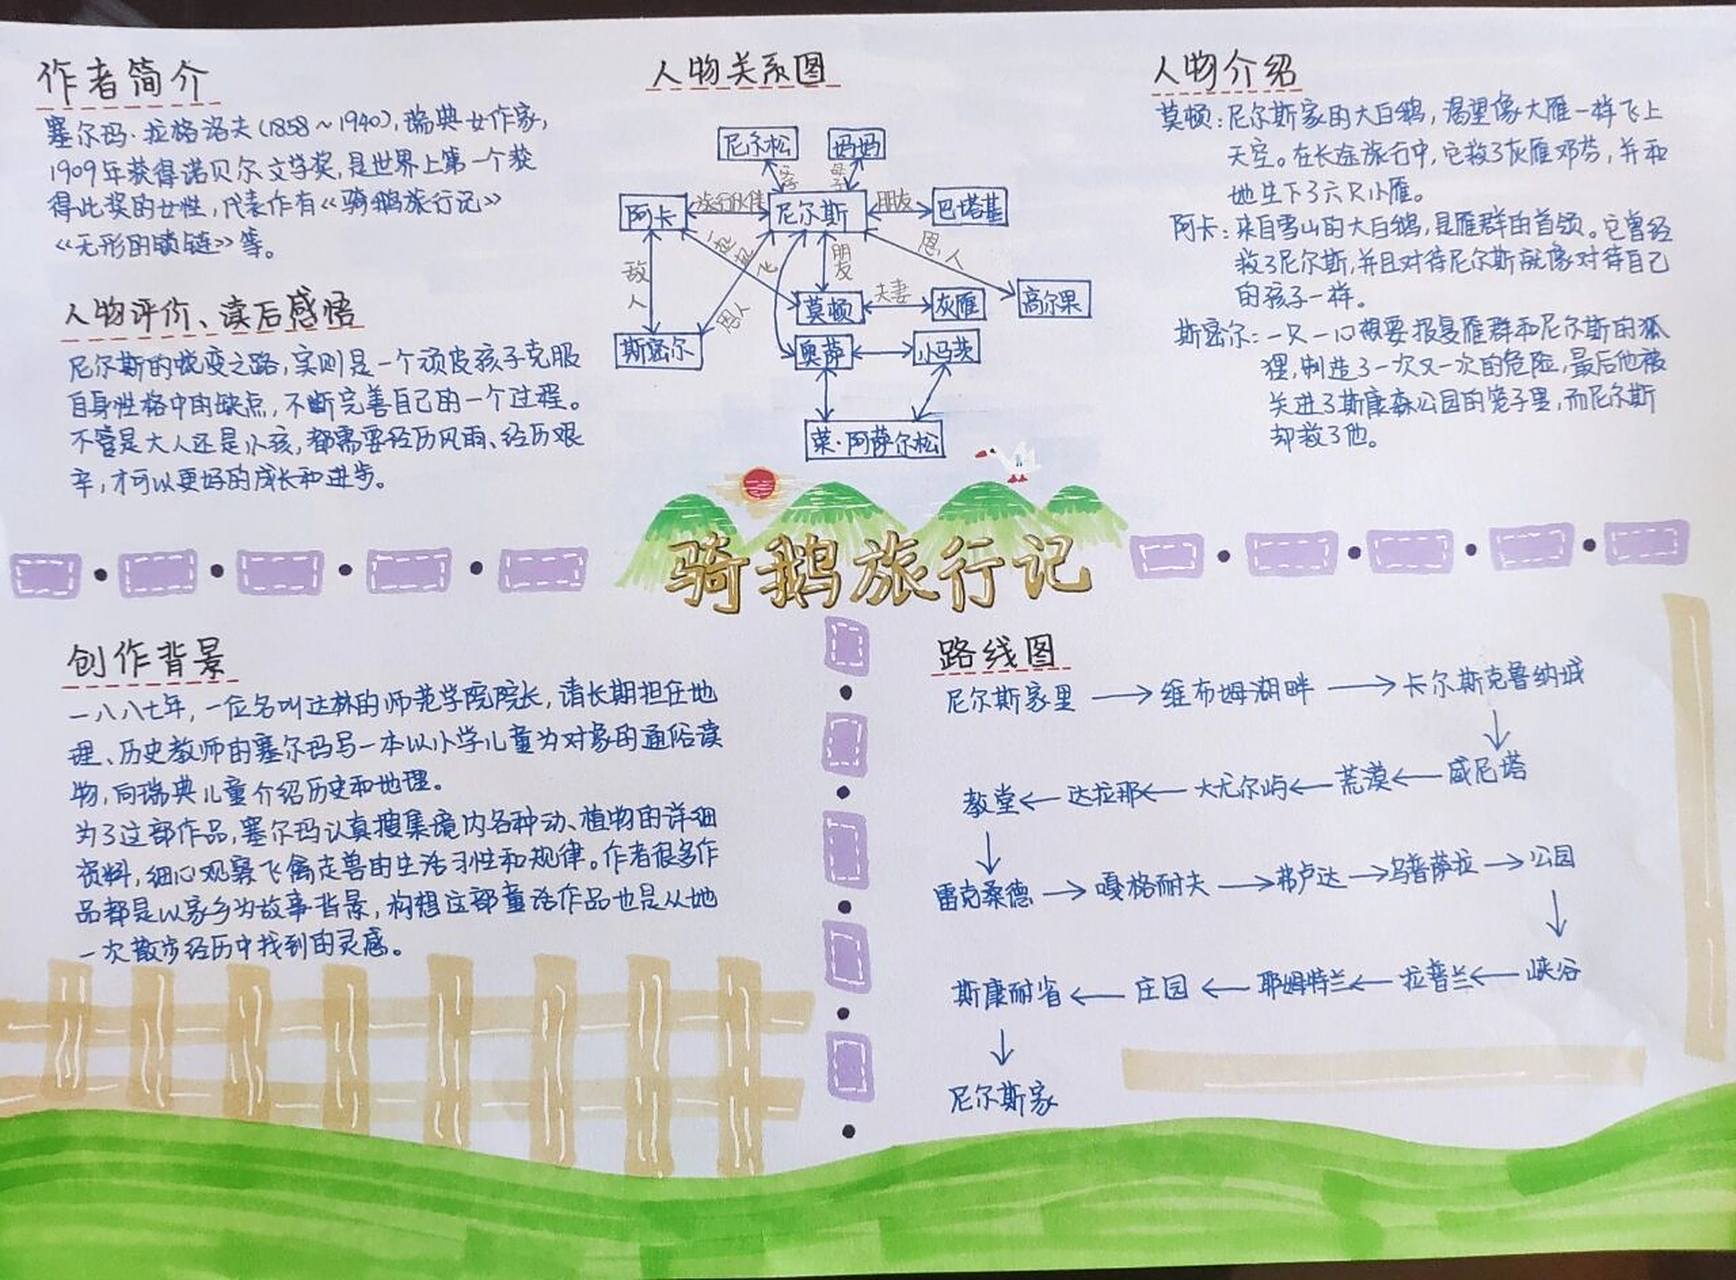 作者简介
塞尔玛·拉格洛夫(1858~1940),瑞典女作家,
1909年获得诺贝尔文学奖,是世界上第一个获
得此奖的女性,代表作有《骑鹅旅行记》
《无形的锁链》等。
人物评价、读后感悟
尼尔斯的蜕变之路,实则是一个顽皮孩子克服
自身性格中的缺点,不断完善自己的一个过程。
不管是大人还是小孩,都需要经历风雨、经历艰
辛,才可以更好的成长和进步。
人物关系图
尼尔松 妈妈
父 母
阿卡 旅行伙伴 尼尔斯 朋友 巴塔基
敌人 一起飞 恩人 朋友 恩人
莫顿 夫妻 灰雁 高尔果
斯密尔 奥萨 小马茨
菜·阿萨尔松
人物介绍
莫顿:尼尔斯家的大白鹅,渴望像大雁一样飞上
天空。在长途旅行中,它救了灰雁邓芬,并和
她生下了六只小雁。
阿卡:来自雪山的大白鹅,是雁群的首领。它曾经
救了尼尔斯,并且对待尼尔斯就像对待自己
的孩子一样。
斯密尔:一只一心想要报复雁群和尼尔斯的狐
狸,制造了一次又一次的危险,最后他被
关进了斯康森公园的笼子里,而尼尔斯
却救了他。
骑鹅旅行记
创作背景
一八八七年,一位名叫达林的师范学院院长,请长期担任地
理、历史教师的塞尔玛写一本以小学儿童为对象的通俗读
物,向瑞典儿童介绍历史和地理。
为了这部作品,塞尔玛认真搜集境内各种动、植物的详细
资料,细心观察飞禽走兽的生活习性和规律。作者很多作
品都是以家乡为故事背景,构想这部童话作品也是从她
一次散步经历中找到的灵感。
路线图
尼尔斯家里 → 维布姆湖畔 → 卡尔斯克鲁纳城
↓
教堂 ← 达拉那 ← 大尤尔屿 ← 荒漠 ← 威尼塔
↓
雷克桑德 → 嘎格耐夫 → 弗卢达 → 乌普萨拉 → 公园
↓
斯康耐省 ← 庄园 ← 耶姆特兰 ← 拉普兰 ← 峡谷
↓
尼尔斯家